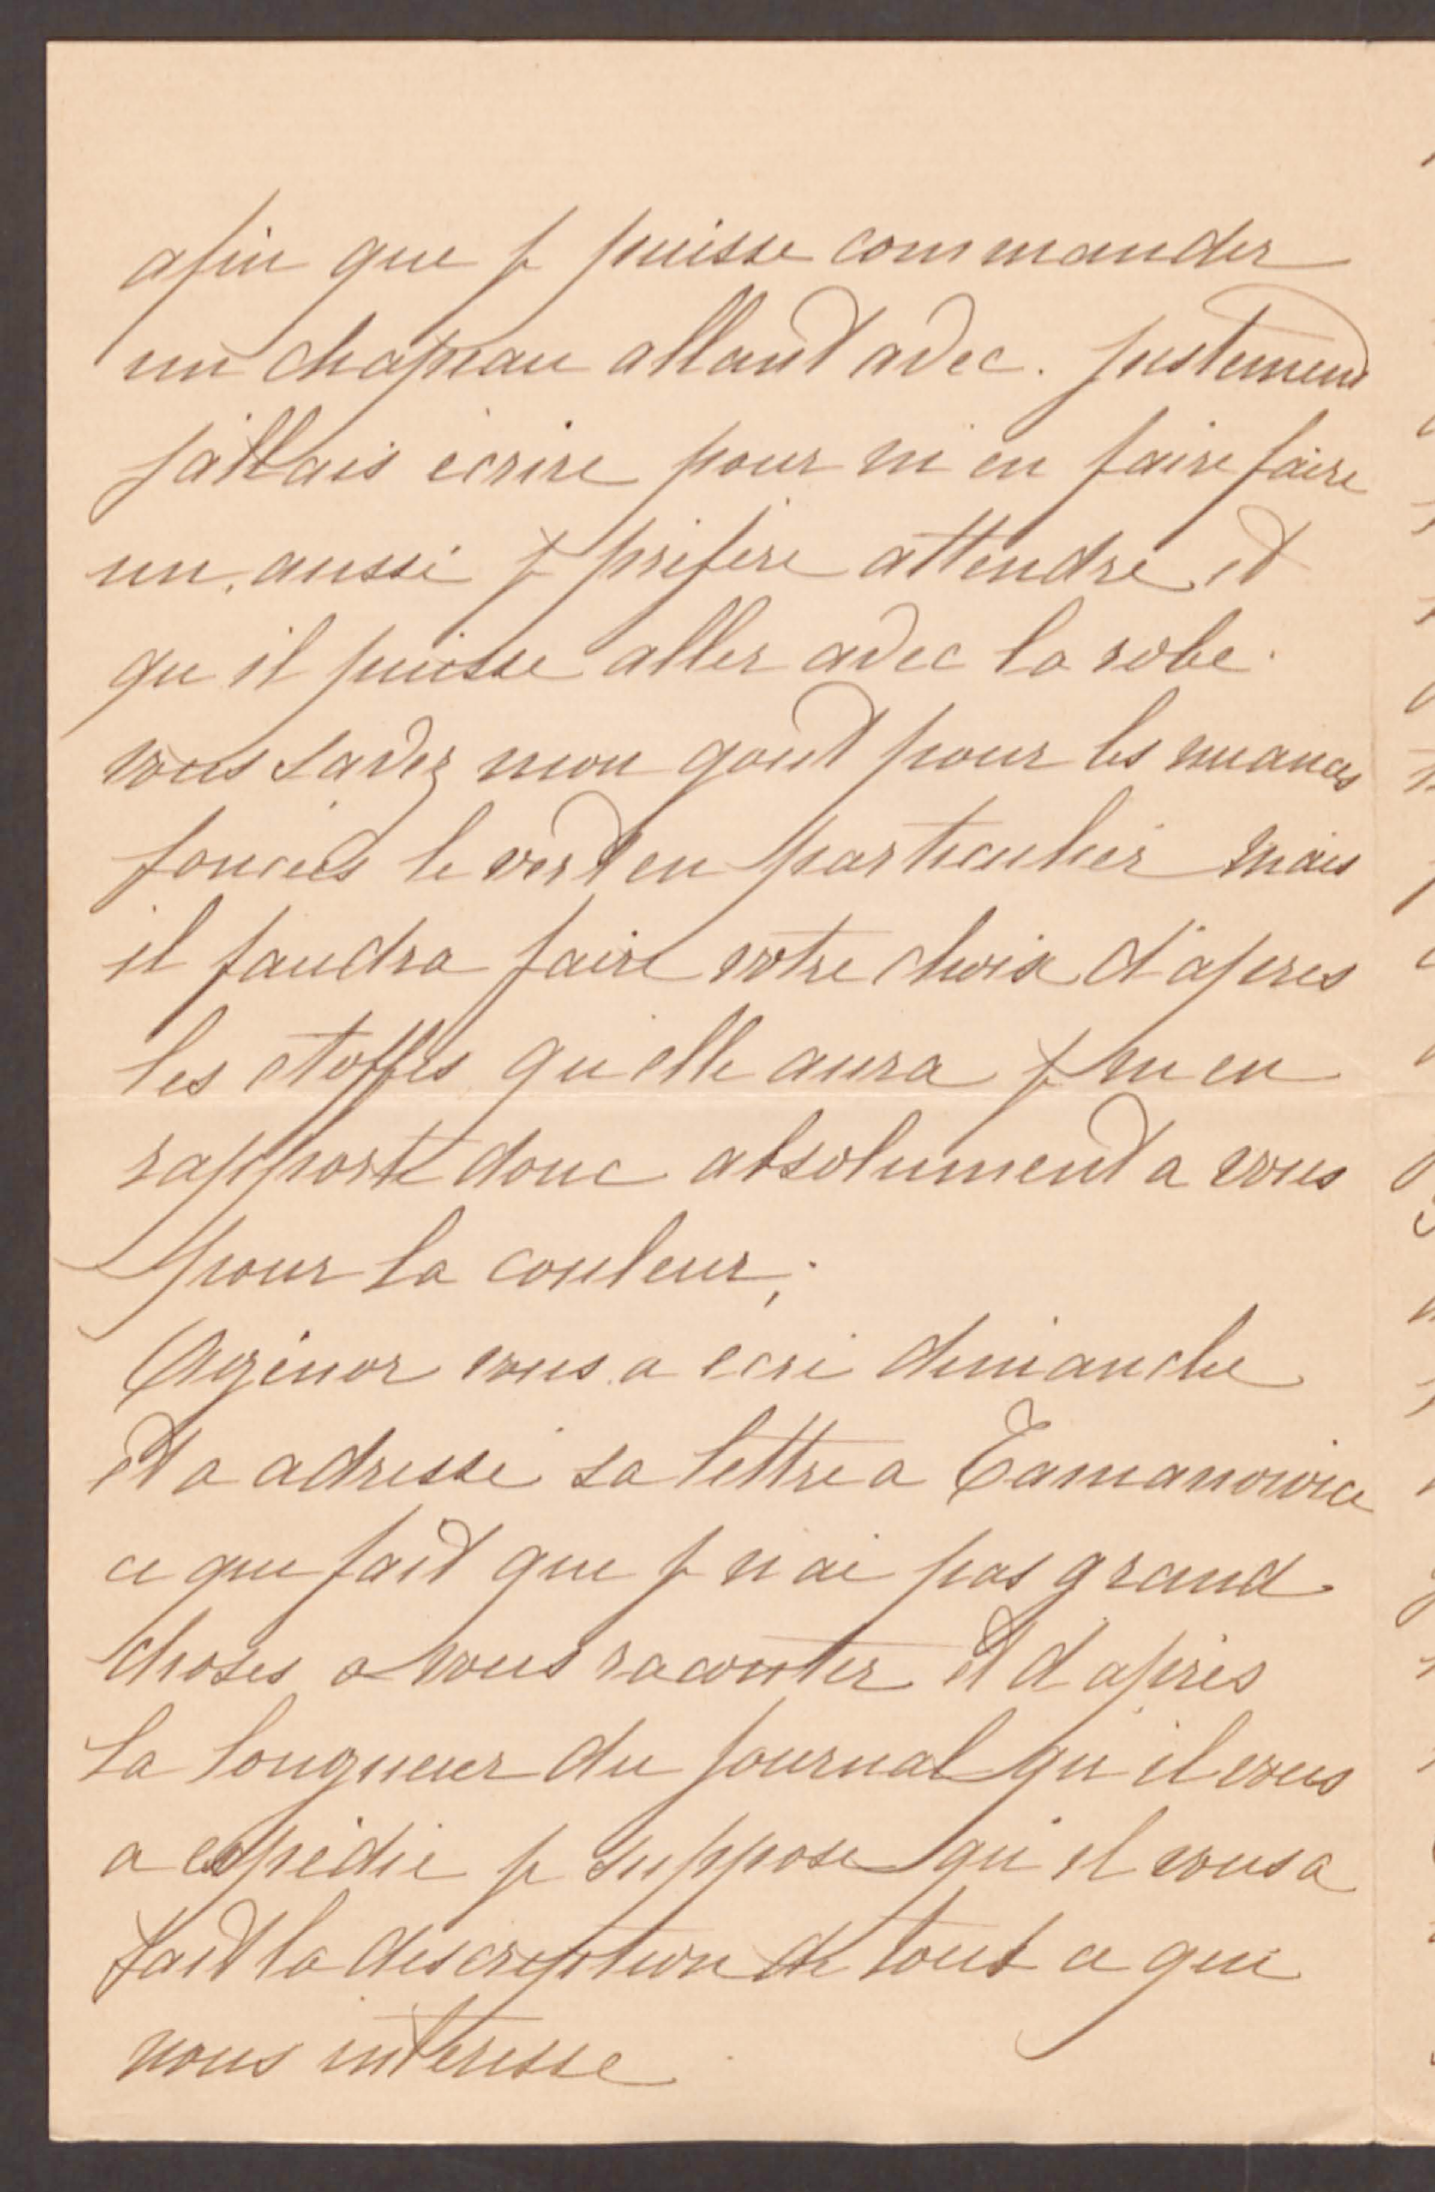 afin que je puisse commander
un chapeau allant avec. Justement
j'allais ecrire pour m'en faire faire
un, aussi je préfère attendre et
qu'il puisse aller avec la robe.
vous savez mon gout pour les nuances
foncées le vert en particulier mais
il faudra faire votre choix d'apres
les etoffes qu'elle aura je m'en
rapporte donc absolument a vous
pour la couleur;
Agénor vous a ecri dimanche
et a adressé sa lettre a
ce qui fait que je n'ai pas grand
choses a vous raconter et d'après
la longueur du journal qu'il vous
a expédié je suppose qu'il vous a
fait la description de tout ce qui
nous intéresse.